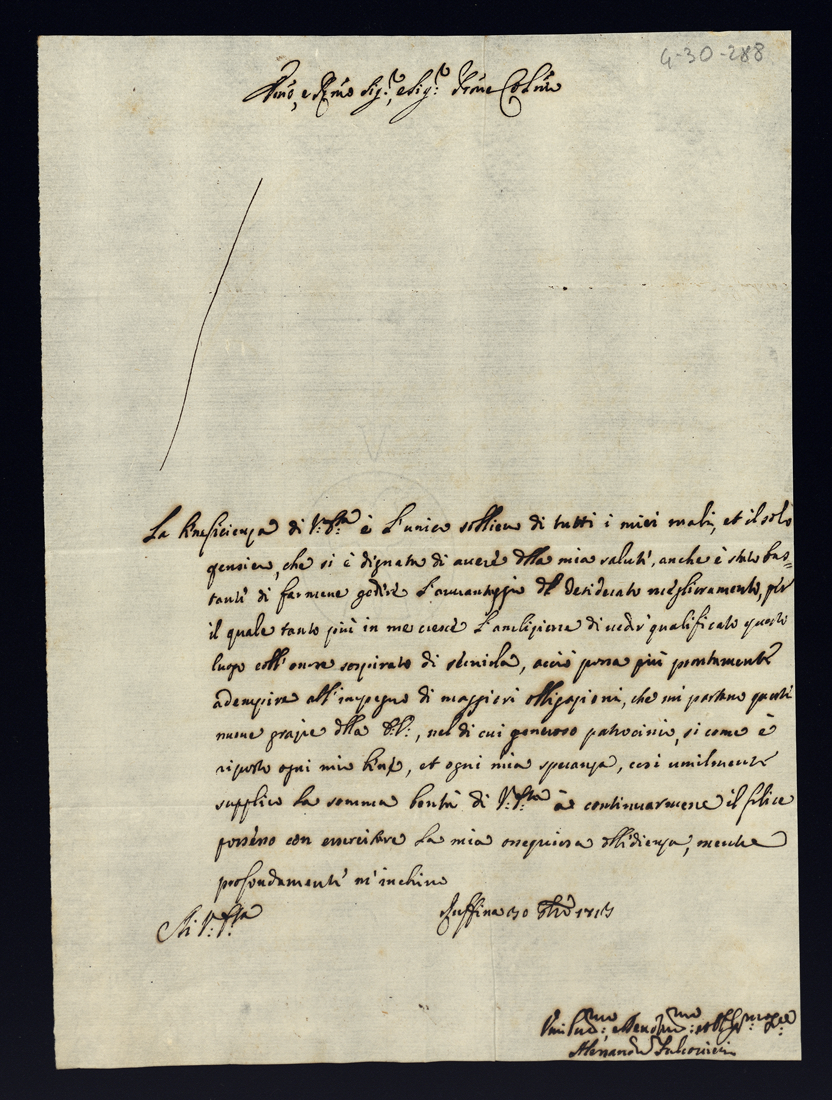 4-30-288
Em̃o, e Rm̃o Sig.r, e Sig.r Pr̃one Col.mo
La beneficienza di V.ra Em.za è l'unico sollievo di tutti i miei mali, et il solo
pensiero, che si è degnata di avere della mia salute, anche è stato bas=
tante di farmene godere l'avvantaggio del desiderato miglioramento, per
il quale tanto più in me cresce l'anzietà di veder qualificato questo
luogo coll'onore sospirato di servirla, acciò possa più prontamente
adempire all'impegno di maggiori obligazioni, che mi portano queste
nuove grazie della, nel di cui generoso patrocinio, si come è
riposto ogni mio bene, et ogni mia speranza, così umilmente
supplico la somma bontà di à continuarmene il felice
possesso con essercitare la mia ossequiosa obbidienza, mentre
profondamente m'inchino
Di V.
Ruffina 30 1713
Umiliss.mo, e Devotiss.mo: et Obblig.mo
Alessandro Falconieri